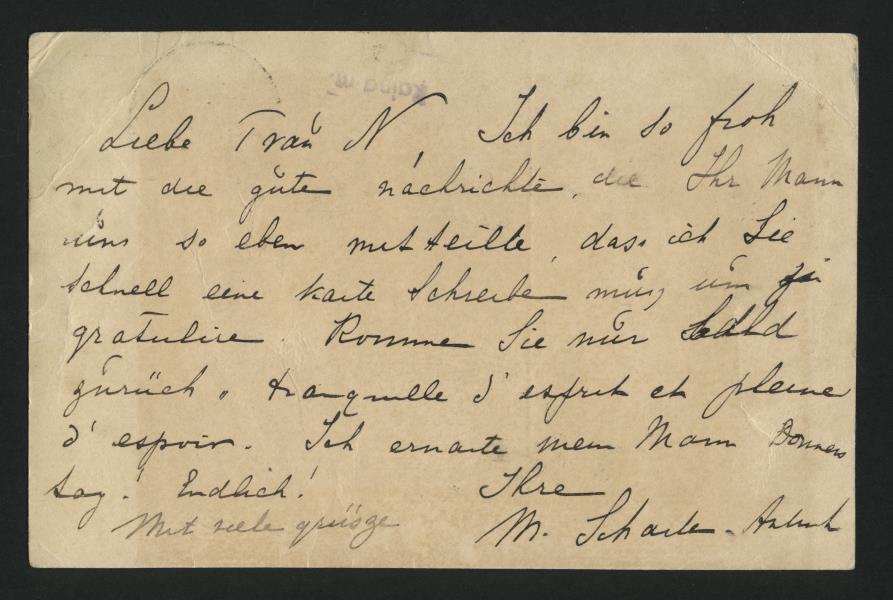 Liebe Fraŭ N, Ich bin so froh
mit die gŭte náchrichte, die Ihr Mann
ŭns so eben mitteille, dass ich Sie
schnell eine karte schreibe mŭs, ŭm zŭ
gratulire. Komme Sie nŭr bald
zŭrück, tranquille d'esprit et pleine
d'espoir. Ich erwarte mein Mann Donners
tag! Endlich! Ihre
Mit viele grüsze M.